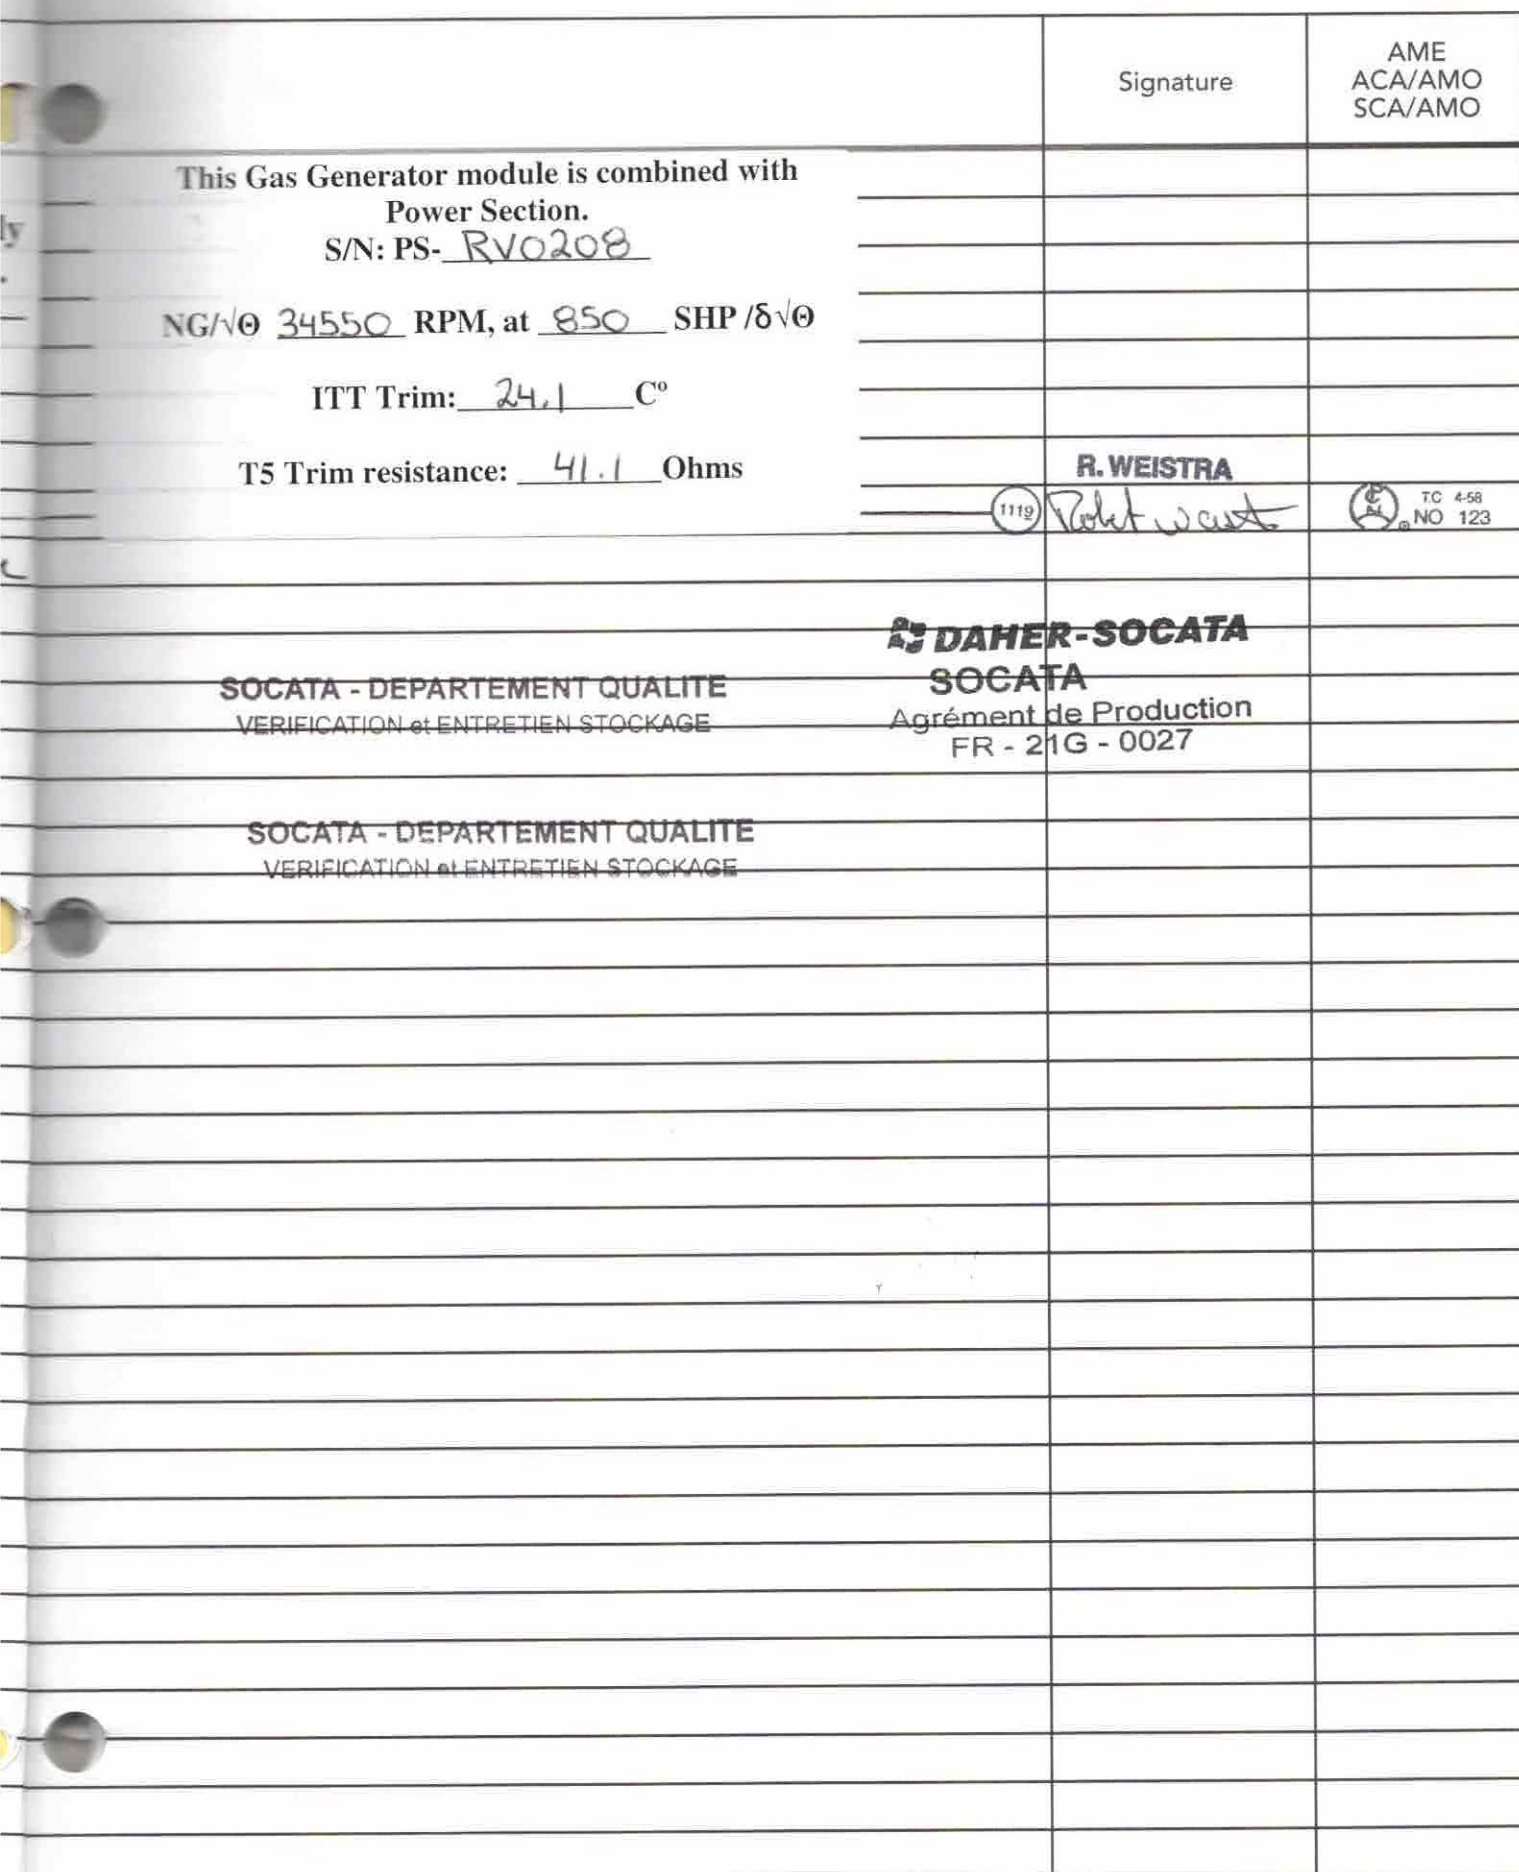 Signature
AME
ACA/AMO
SCA/AMO
This Gas Generator module is combined with
Power Section.
S/N: PS- RV0208
NG/√Θ 34550 RPM, at 850 SHP /δ√Θ
ITT Trim: 24.1 Cº
T5 Trim resistance: 41.1 Ohms
R. WEISTRA
1119
TC 4-58
NO 123
ly
DAHER-SOCATA
SOCATA
Agrément de Production
FR - 21G - 0027
SOCATA - DEPARTEMENT QUALITE
VERIFICATION et ENTRETIEN STOCKAGE
SOCATA - DEPARTEMENT QUALITE
VERIFICATION et ENTRETIEN STOCKAGE